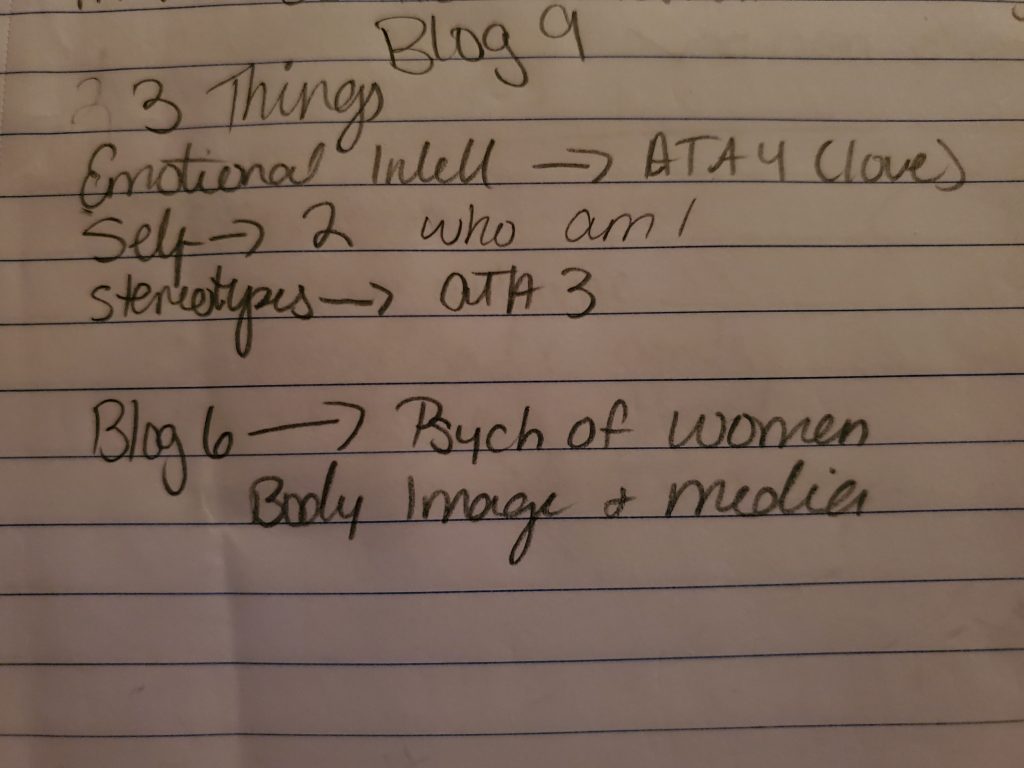 Blog 9
3 Things
Emotional Intell → ATA 4 (love)
Self → 2 who am I
Stereotypes → ATA 3
Blog 6 → Psych of women
Body Image + media